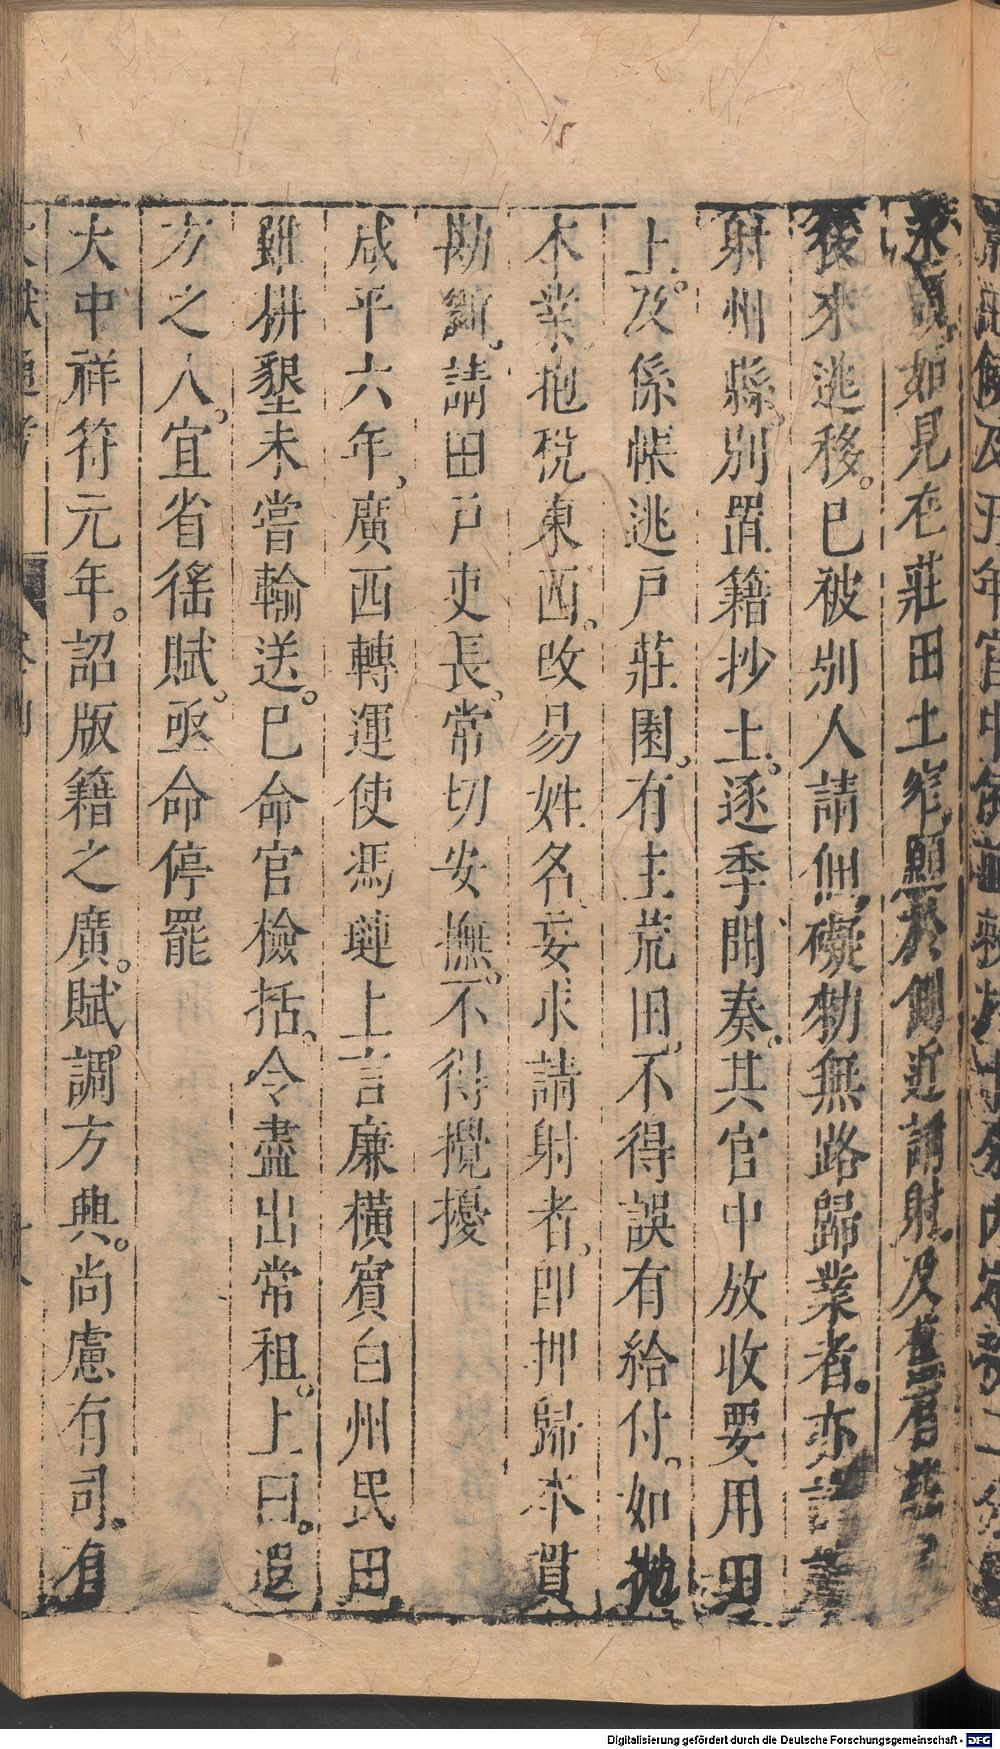 永額。如見在莊田土窄。願於側近請射。及舊有莊
後來逃移。已被別人請佃。礙勅無路歸業者。亦許
射州縣。別置籍抄上。逐季開奏。其官中放收要用田
土。及係帳逃戶莊園。有主荒田。不得誤有給付。如抛
本業。抱稅東西。改易姓名。妄求請射者。即押歸本貫
勘斷。請田戶吏長。常切安撫。不得攪擾
咸平六年。廣西轉運使馮璉上言廉橫賓白州民田
雖耕墾未嘗輸送。已命官檢括。令盡出常租。上曰。遐
方之人。宜省徭賦。亟命停罷
大中祥符元年。詔版籍之廣。賦調方興。尚慮有司。有
Digitalisierung gefördert durch die Deutsche Forschungsgemeinschaft - DFG